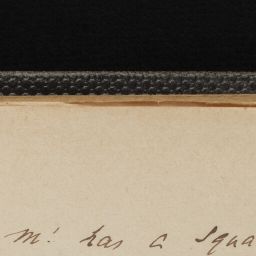 M! has a Squa